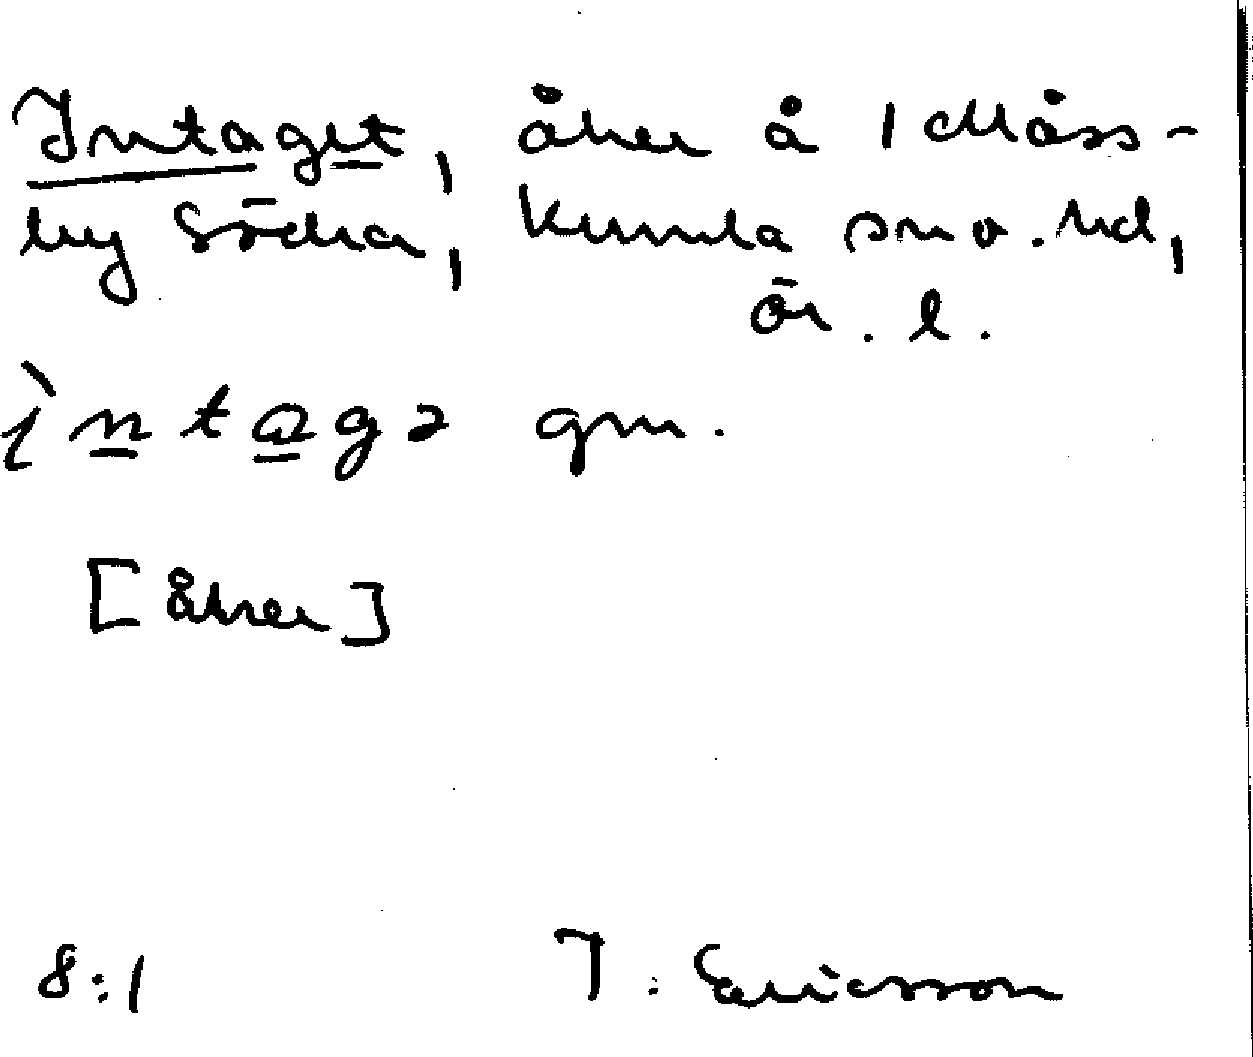 Intaget, åker å 1 Måss-
by Södra, Kumla sn o. hd,
Ör. l.
ìntagə gm.
[Åker]
8:1 T. Ericsson